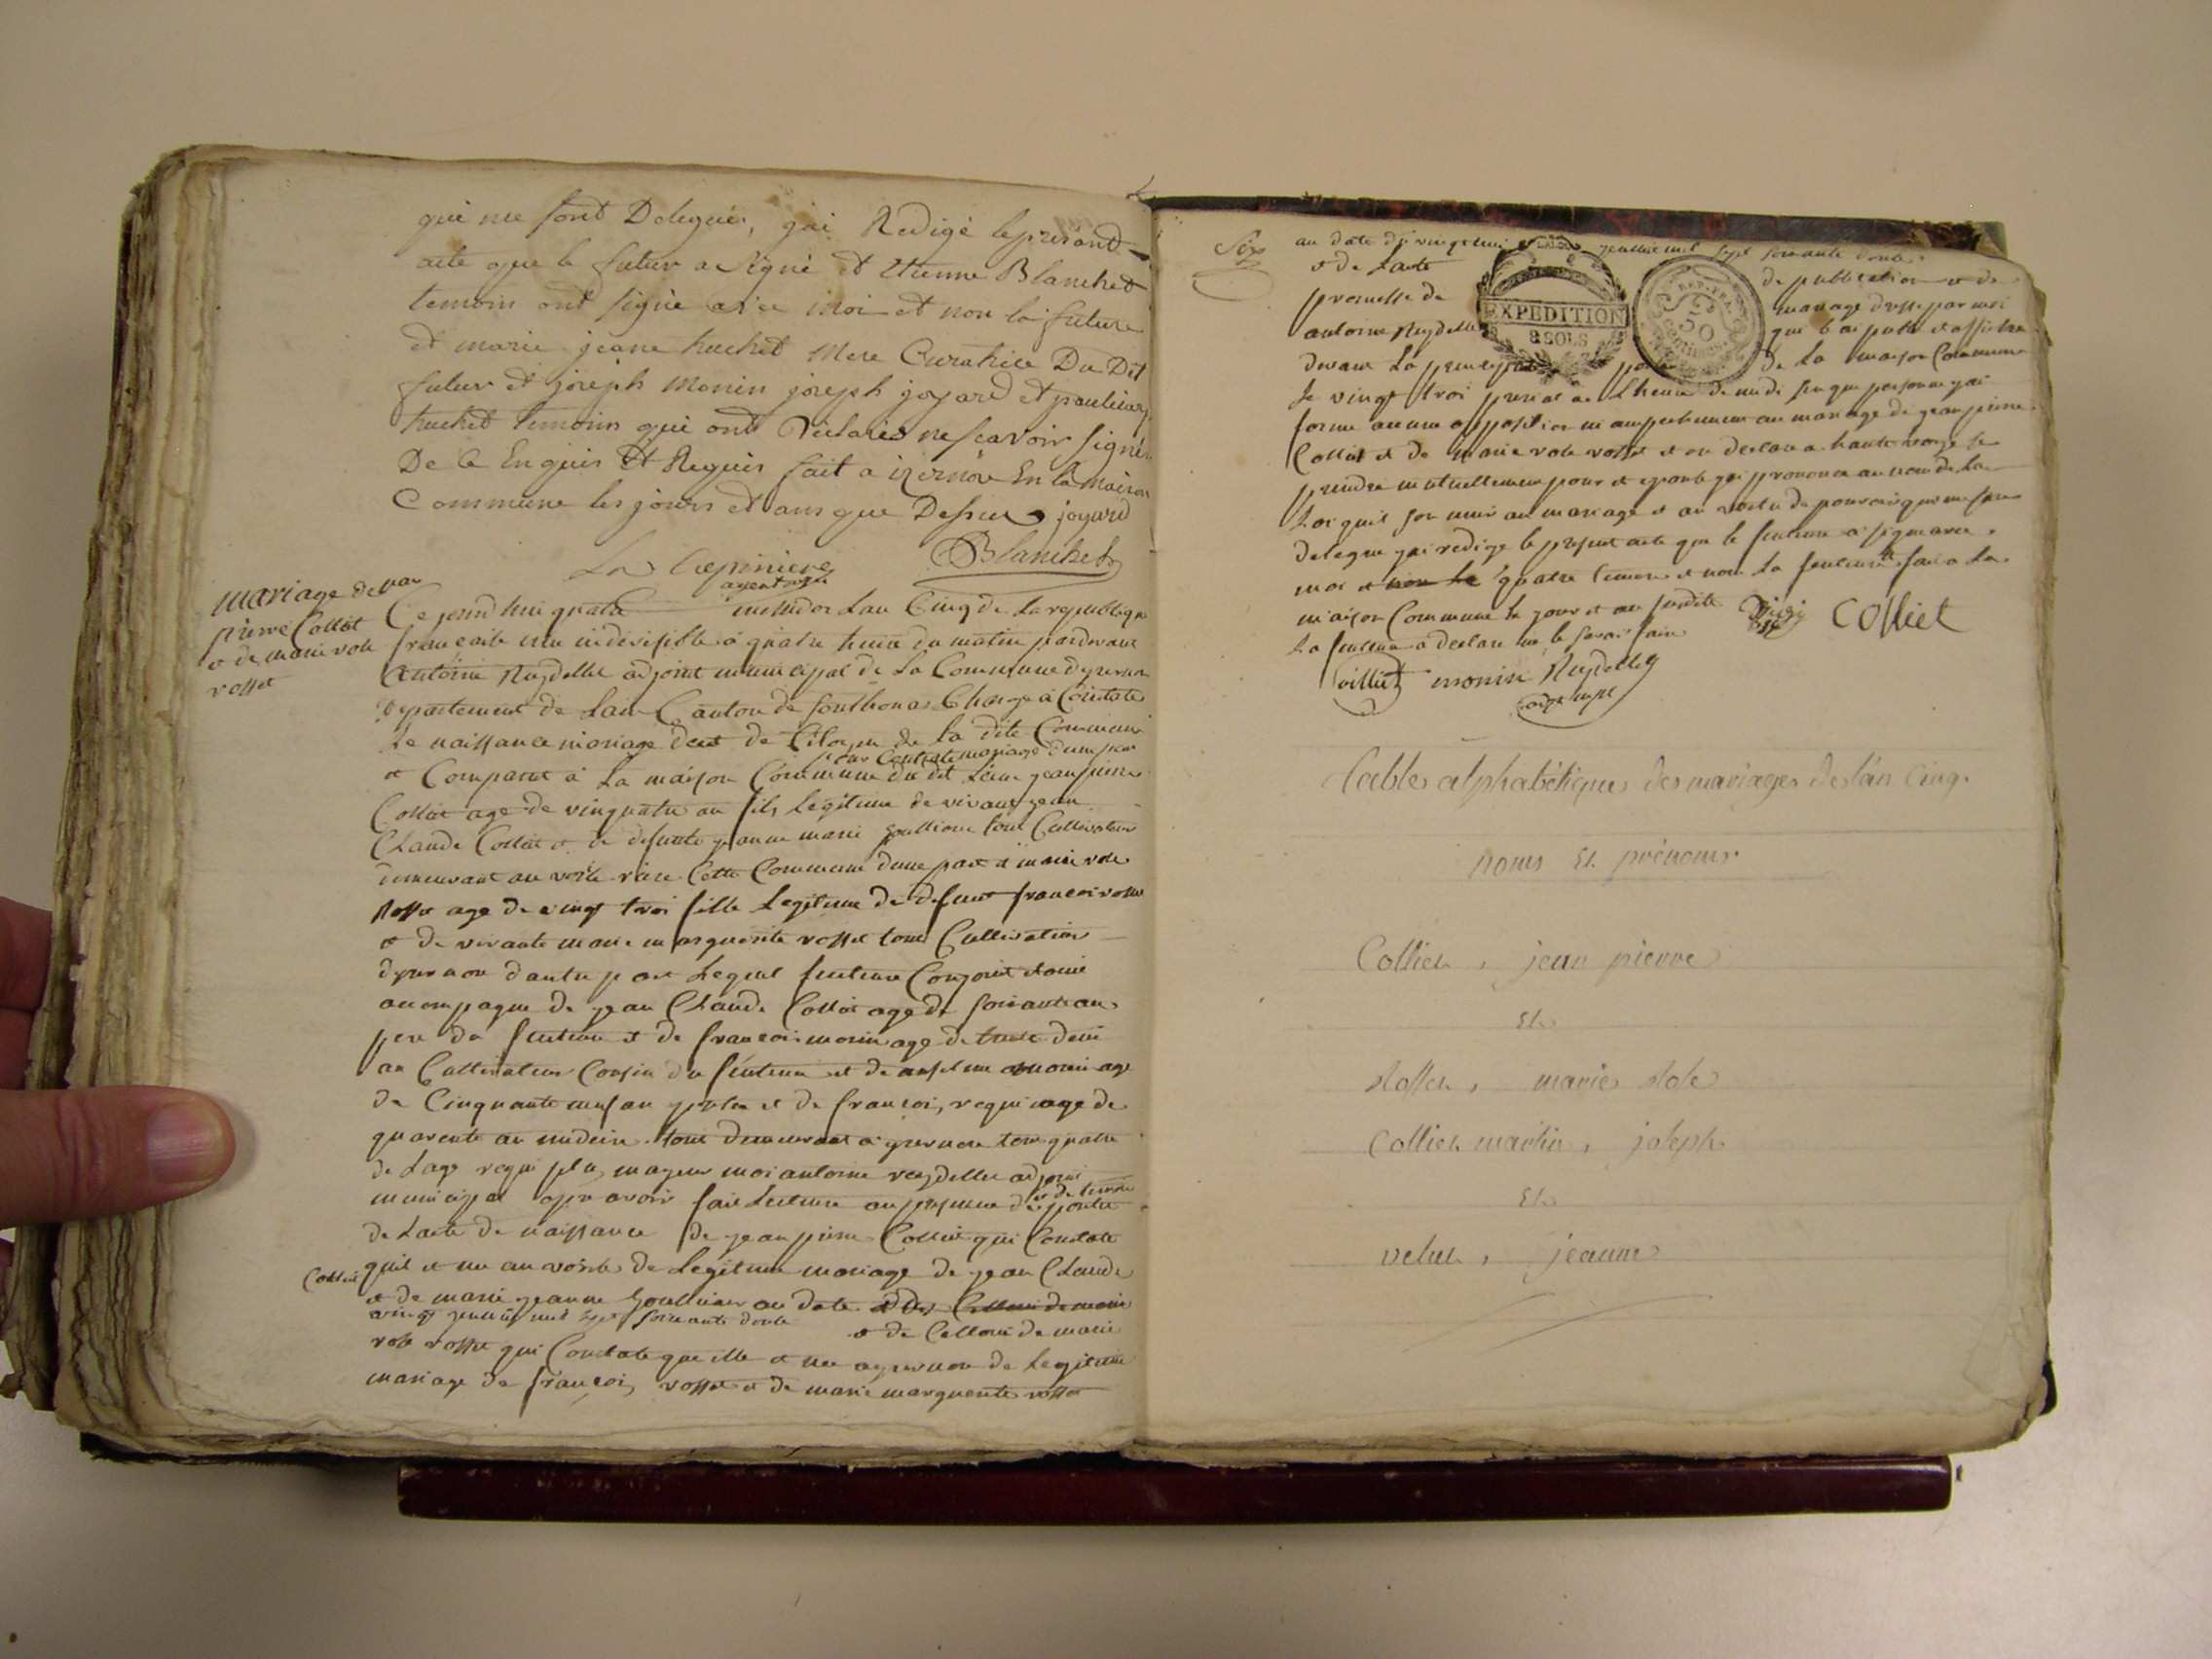 qui me sont Delegués, jai Redigé le présend
acte que le futur a signé et Etienne Blanchet
temoin ont signé avec moi et non la future
et marie jeane huchet Mere Curatrice Du Dit
futur et joseph monin joseph joyard et
huchet temoin qui ont Déclarés ne scavoir signé
De ce Enquis Et Requis fait a izernore En la maison
Commune les jours et ans que Dessus joyard
Blanchet
agent
mariage de
pierre Colliet
et de marie rose
rosset
Ce jourd'hui quatre messidor lan Cinq de la republique
francaise une indivisible a quatre heure du matin pardevant
antoine Reydellet adjoint municipal de la Commune
departement de lain Canton de sonthonas Charge a Constate
le naissance mariage deces de Citoyen de la dite Commune
pour Contrate mariage
et Comparut a la maison Commune du dit lieu jean pierre
Colliet age de vingquatre an fils legitime de vivant jean
Claude Colliet et de defunte jeanne marie tout Cultivateur
demeurant au Cette Commune dune part et marie rose
Rosset age de vingt troi fille legitime de defunt francoi rosset
et de vivante marie marguerite rosset tout Cultivateur
dautre part lequel futeure Conjoint
acompagne de jean Claude Colliet age de soixante an
pere du futeure et de francoi monin age de deux
an Cultivateur Cousin du futeure et de anselme monin age
de Cinquante neuf an et de francoi, age de
quarente an tout demeurant a tou quatre
de lage requi plu mageur moi antoine reydellet adjoint
et de temoin
municipal apre avoir fait lecture au presence de partie
de lacte de naissance de jean pierre Colliet qui Constate
quil et ne au de legitime mariage de jean Claude
Colliet
et de marie jeanne au date
vingt mil sept soixante douze et de Celloui de marie
rose rosset qui Constate que elle et nee a de legitime
mariage de francoi rosset et de marie marguerite rosset
Six
au date du vingt sept soixante douze
et de lacte de publication et de
promesse de mariage dresse par moi
antoine Reydellet que et affiche
EXPEDITION
2 SOLS
REP. FRA.
50
devant la principale porte de la maison Commune
le vingt troi a lheure de midi sen que personne
forme aucune opposition ni ampechement au mariage de jean pierre
Colliet et de marie rose rosset et on declare a haute voix se
prendre mutuellement pour et epouse jai prononce au nom de la
loi quil son unie au mariage et au vertu de pouvoir qui me son
delegue jai redige le present acte que le futeure a signe avec
moi et quatre temoin et non la futeure fait a la
maison Commune le jour et an susdit Colliet
la futeure a declare ne le savoir faire
monin Reydellet
adjt mpl
Table alphabétique des mariages de l'an Cinq.
noms Et prénoms
Colliet, jean pierre
Et
Rosset, marie Rose
Colliet martin, joseph
Et
velut, jeanne